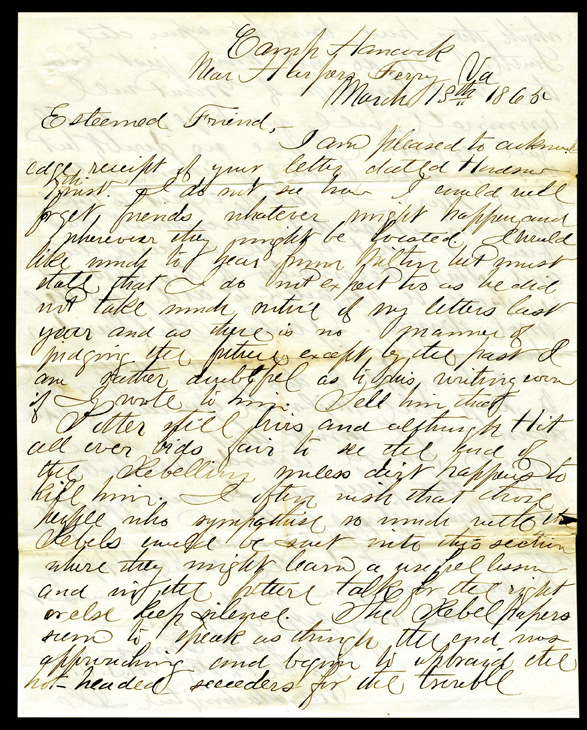 Camp Hancock
Near Harpers Ferry Va
March 13th 1865
Esteemed Friend,
I am pleased to acknowl
edge receipt of your letter dated Hudson
inst. I do not see how I could well
forget friends whatever might happen and
wherever they might be located. I would
like much to hear from but must
state that I do not expect to as he did
not take much notice of my letters last
year and as there is no manner of
judging the future except by the past I
am rather doubtful as to his writing even
if I wrote to him. Tell him that
still lives and although
all over bids fair to see the end of
the Rebellion unless dirt happens to
kill him. I often wish that those
people who sympathise so much with the
Rebels could be sent into this section
where they might learn a useful lesson
and in the future talk for the right
or else keep silence. The Rebel papers
seem to speak as though the end was
approaching and begin to upbraid the
hot-headed seceeders for the trouble